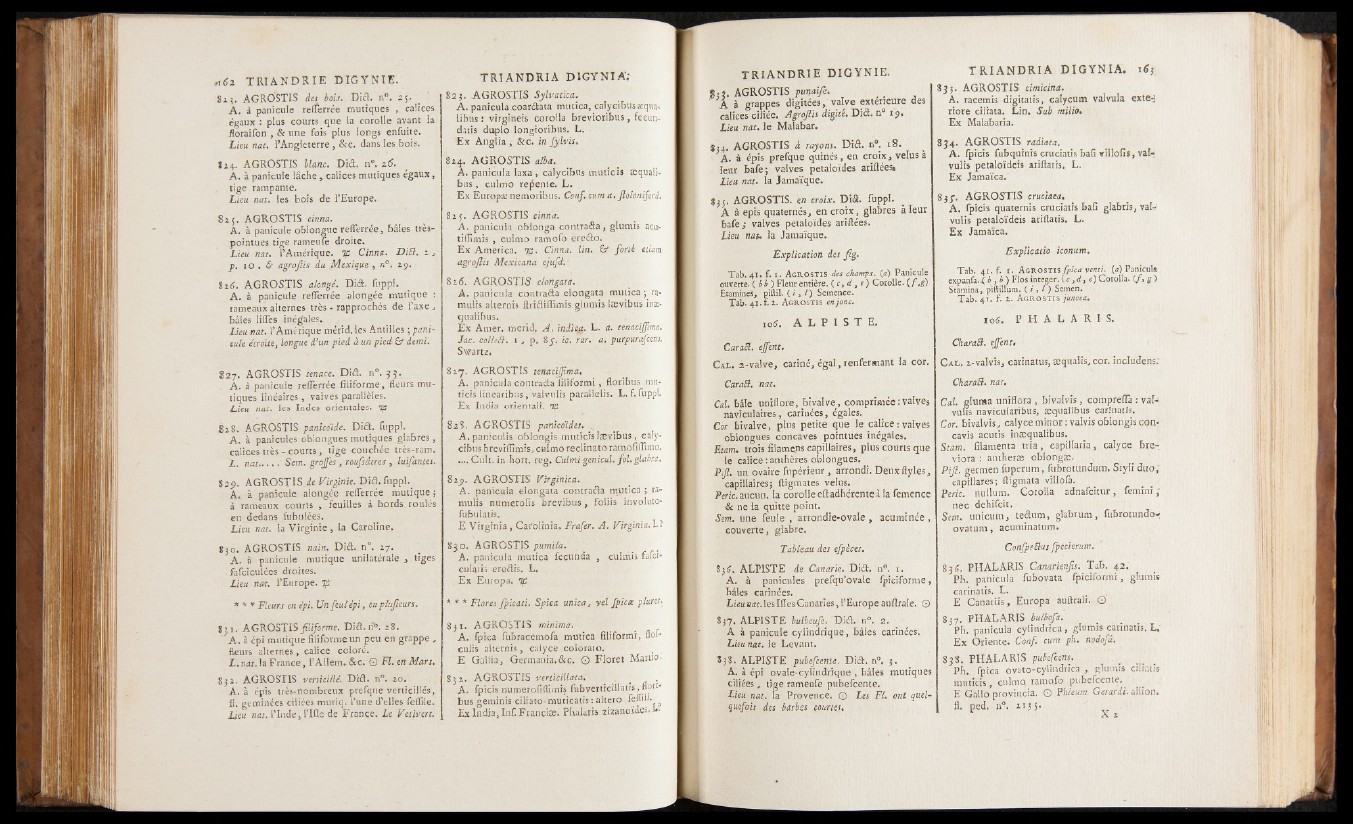 162 TRIANDRIE DIGYNIE.
823. AGROSTIS des bois. Dict. n°. 25.
A. à panicule resserrée mutiques , calices
égaux : plus courts que la corolle avant la
floraison , & une fois plus longs ensuite.
Lieu nat. l'Angleterre , &c. dans les bois.
824. AGROSTIS blanc. Dict. n°. 26.
A. à panicule lâche, calices mutiques égaux,
tige rampante.
Lieu nat. les bois de l'Europe.
825. AGROSTIS cinna.
A. à panicule oblongue resserrée, bâles très-
pointues tige rameuse droite.
Lieu nat. l'Amérique. ♃ Cinna. Dict. 2,
p. 10. & agrostis du Mexique, n°. 29.
826. AGROSTIS alongé. Dict. suppl.
A. à panicule resserrée alongée mutique :
rameaux alternes très-rapprochés de l'axe,
bâles lisses inégales.
Lieu nat. l'Amérique mérid. les Antilles ; pani-
cule étroite, longue d'un pied à un pied & demi.
827. AGROSTIS tenace. Dict. n°. 33.
A. à panicule resserrée filiforme, fleurs mu-
tiques linéaires , valves parallèles.
Lieu nat. les Indes orientales. ♃
828. AGROSTIS panicoïde. Dict. suppl.
A. à panicules oblongues mutiques glabres,
calices très-courts , tige couchée très-ram.
L. nat..... Sem. grosses, roussâtres, luisantes.
829. AGROSTIS de Virginie. Dict. suppl.
A. à panicule alongée resserrée mutique ;
à rameaux courts , feuilles à bords roulés
en dedans subulées.
Lieu nat. la Virginie , la Caroline.
830. AGROSTIS nain. Dict. n°. 27.
A. à panicule mutique unilatérale , tiges
fasciculées droites.
Lieu nat. l'Europe. ♃
* * * Fleurs en épi. Un seul épi, ou plusieurs.
831. AGROSTIS filiforme. Dict. n°. 28.
A. à épi mutique filiforme un peu en grappe,
fleurs alternes, calice coloré.
L. nat. la France, l'Allem. &c. ☉ Fl. en Mars.
832. AGROSTIS verticillé. Dict. n°. 20.
A. à épis très-nombreux presque verticillés,
fl. geminées ciliées mutiq. l'une d'elles sessile.
Lieu nat. l'Inde, l'Isle de France. Le Vetivert.
TRIANDRIA DIGYNIA.
823. AGROSTIS Sylvatica.
A. panicula coarctata mutica, calycibus æqua-
libus : virgineis corolla brevioribus, fecun-
datis duplo longioribus. L.
Ex Anglia , &c. in sylvis.
824. AGROSTIS alba.
A. panicula laxa, calycibus muticis æquali-
bus, culmo repente. L.
Ex Europæ nemoribus. Conf. cum a. stolonifera.
825. AGROSTIS cinna.
A. panicula oblonga contracta, glumis acu-
tissimis, culmo ramoso erecto.
Ex America. ♃. Cinna. Lin. & forté etiam
agrostis Mexicana ejusd.
826. AGROSTIS elongata.
A. panicula contracta elongata mutica ; ra-
mulis alternis strictissimis glumis lævibus inæ-
qualibus.
Ex Amer. merid. A. indica. L. a. tenacissima.
Jac. collect. 1, p. 85. ic. rar. a. purpurascens.
Swartz.
827. AGROSTIS tenacissima.
A. panicula contracta filiformi, floribus mu-
ticis linearibus, valvulis parallelis. L. f. suppl.
Ex India orientali. ♃
828. AGROSTIS panicoïdes.
A. paniculis oblongis muticis lævibus, caly-
cibus brevissimis, culmo reclinato ramosissimo.
.... Cult. in hort. reg. Culmi genicul. fol. glabra.
829. AGROSTIS Virginica.
A. panicula elongata contracta mutica ; ra-
mulis numerosis brevibus, foliis involuto-
subulatis.
E Virginia, Carolinia. Fraser. A. Virginia. L?
830. AGROSTIS pumila.
A. panicula mutica secunda , culmis fasci-
cularis erectis. L.
Ex Europa. ♃
* * * Flores spicati. Spica unica, vel spicæ plures.
831. AGROSTIS minima.
A. spica subracemosa mutica filiformi, flos-
culis alternis, calyce colorato.
E Gallia, Germania.&c. ☉ Floret Martio.
832. AGROSTIS verticillata.
A. spicis numerosissimis subverticillatis, flori-
bus geminis ciliato-muricatis : altero sessili.
Ex India, Inf. Franciæ. Phalaris zizanoides. L.
TRIANDRIE DIGYNIE.
833. AGROSTIS punaise.
A à grappes digitées, valve extérieure des
calices ciliée. Agrostis digité. Dict. n° 19.
Lieu nat. le Malabar.
834. AGROSTIS à rayons. Dict. n°. 18.
A. à épis presque quinés, en croix, velus à
leur base; valves petaloïdes aristées.
Lieu nat. la Jamaïque.
835. AGROSTIS. en croix. Dict. suppl.
A à epis quaternés, en croix, glabres à leur
base ; valves petaloïdes aristées.
Lieu nat. la Jamaïque.
Explication des fig.
Tab. 41. f. 1. AGROSTIS des champs. (a) Panicule
ouverte. (b b) Fleur entière. (c, d, e) Corolle. (f, g)
Etamines, pistil. (i, l) Semence.
Tab. 41. f. 2. AGROSTIS en jonc.
106. ALPISTE.
Caract. essent.
CAL. 2-valve, cariné, égal, renfermant la cor.
Caract. nat.
Cal. bâle uniflore, bivalve, comprimée : valves
naviculaires, carinées, égales.
Cor bivalve, plus petite que le calice : valves
oblongues concaves pointues inégales.
Etam. trois filamens capillaires, plus courts que
le calice : anthères oblongues.
Pist. un ovaire supérieur, arrondi. Deux styles,
capillaires; stigmates velus.
Peric. aucun. la corolle est adhérente à la semence
& ne la quitte point.
Sem. une seule , arrondie-ovale , acuminée ,
couverte, glabre.
Tableau des espèces.
836. ALPISTE de Canarie. Dict. n°. 1.
A. à panicules presqu'ovale spiciforme,
bâles carinées.
Lieu nat. les Isles Canaries, l'Europe australe. ☉
837. ALPISTE bulbeuse. Dict. n°. 2.
A à panicule cylindrique, bâles carinées.
Lieu nat. le Levant.
838. ALPISTE pubescente. Dict. n°. 3.
A. à épi ovale-cylindrique, bâles mutiques
ciliées, tige rameuse pubescente.
Lieu nat. la Provence. ☉ Les Fl. ont quel-
quefois des barbes courtes.
TRIANDRIA DIGYNIA. 163
833. AGROSTIS cimicina.
A. racemis digitatis, calycum valvula exte-
riore ciliata. Lin. Sub milio.
Ex Malabaria.
834. AGROSTIS radiata.
A. spicis subquinis cruciatis basi villosis, val-
vulis petaloïdeis aristatis. L.
Ex Jamaïca.
835. AGROSTIS cruciata.
A. spicis quaternis cruciatis basi glabris, val-
vulis petaloïdeis aristatis. L.
Ex Jamaïca.
Explicatio iconum.
Tab. 41. f. 1. AGROSTIS spica venti. (a) Panicula
expansa. (b, b) Flos integer. (c, d, e) Corolla. (f, g)
Stamina, pistillum. (i, l) Semen.
Tab. 41. f. 2. AGROSTIS juncea.
106. PHALARIS.
Charact. essent.
CAL. 2-valvis, carinatus, æqualis, cor. includens.
Charact. nat.
Cal. gluma uniflora, bivalvis, compressa : val-
vulis navicularibus, æqualibus carinatis.
Cor. bivalvis, calyce minor : valvis oblongis con-
cavis acutis inæqualibus.
Stam. filamenta tria, capillaria, calyce bre-
viora : antheræ oblongæ.
Pist. germen superum, subrotundum. Styli duo,
capillares; stigmata villosa.
Peric. nullum. Corolla adnascitur, semini,
nec dehiscit.
Sem. unicum, tectum, glabrum, subrotundo-
ovatum, acuminatum.
Conspectus specierum.
836. PHALARIS Canariensis. Tab. 42.
Ph. panicula subovata spiciformi, glumis
carinatis. L.
E Canariis, Europa australi. ☉
837. PHALARIS bulbosa.
Ph. panicula cylindrica, glumis carinatis. L.
Ex Oriente. Conf. cum ph. nodosâ.
838. PHALARIS pubescens.
Ph. spica ovato-cylindrica , glumis ciliatis
muticis, culmo ramoso pubescente.
E Gallo provincia. ☉ Phleum Gerardi. allion.
fl. ped. n°. 2135.
X 2